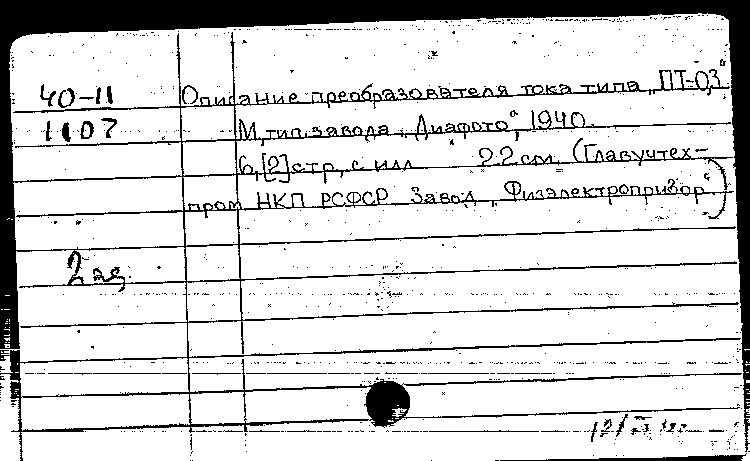 40-11 Описание преобразователя тока типа „ПТ-0,3“
1107 М, тип. завода „Диафото“, 1940.
6, [2] стр, с илл 22 см. (Главучтех-
пром НКП РСФСР Завод „Физэлектроприбор“.)
2 экз.